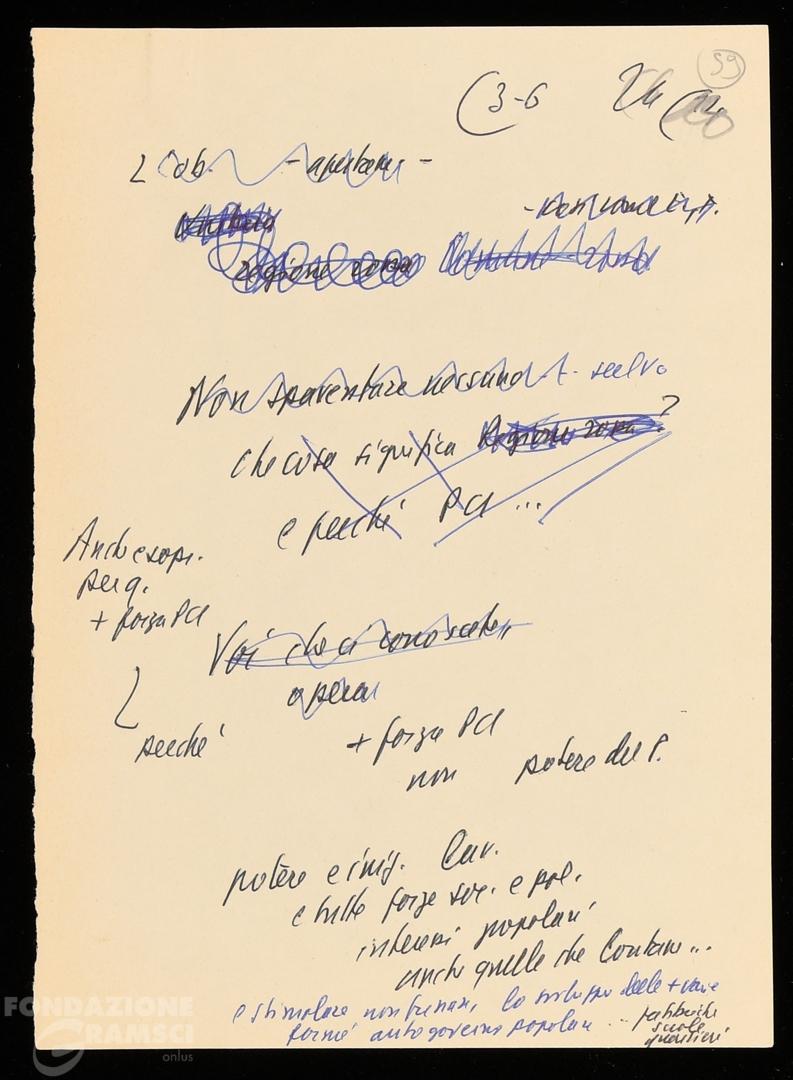 59
(3-6
2 ob. - apertam. -
Regione zona
Non spaventare nessuno
che cosa significa ?
e perché PCI ...
Anche sopr.
per q.
+ forza PCI
Voi che ci conoscete
operai
perché
+ forza PCI
non potere del P.
potere e imp. Lav.
e tutte forze soc. e pol.
interessi popolari
anche quelle che contano ...
e stimolare non frenare lo sviluppo delle + varie
forme autogoverno popolare ... fabbriche
scuole
quartieri
FONDAZIONE
GRAMSCI
onlus